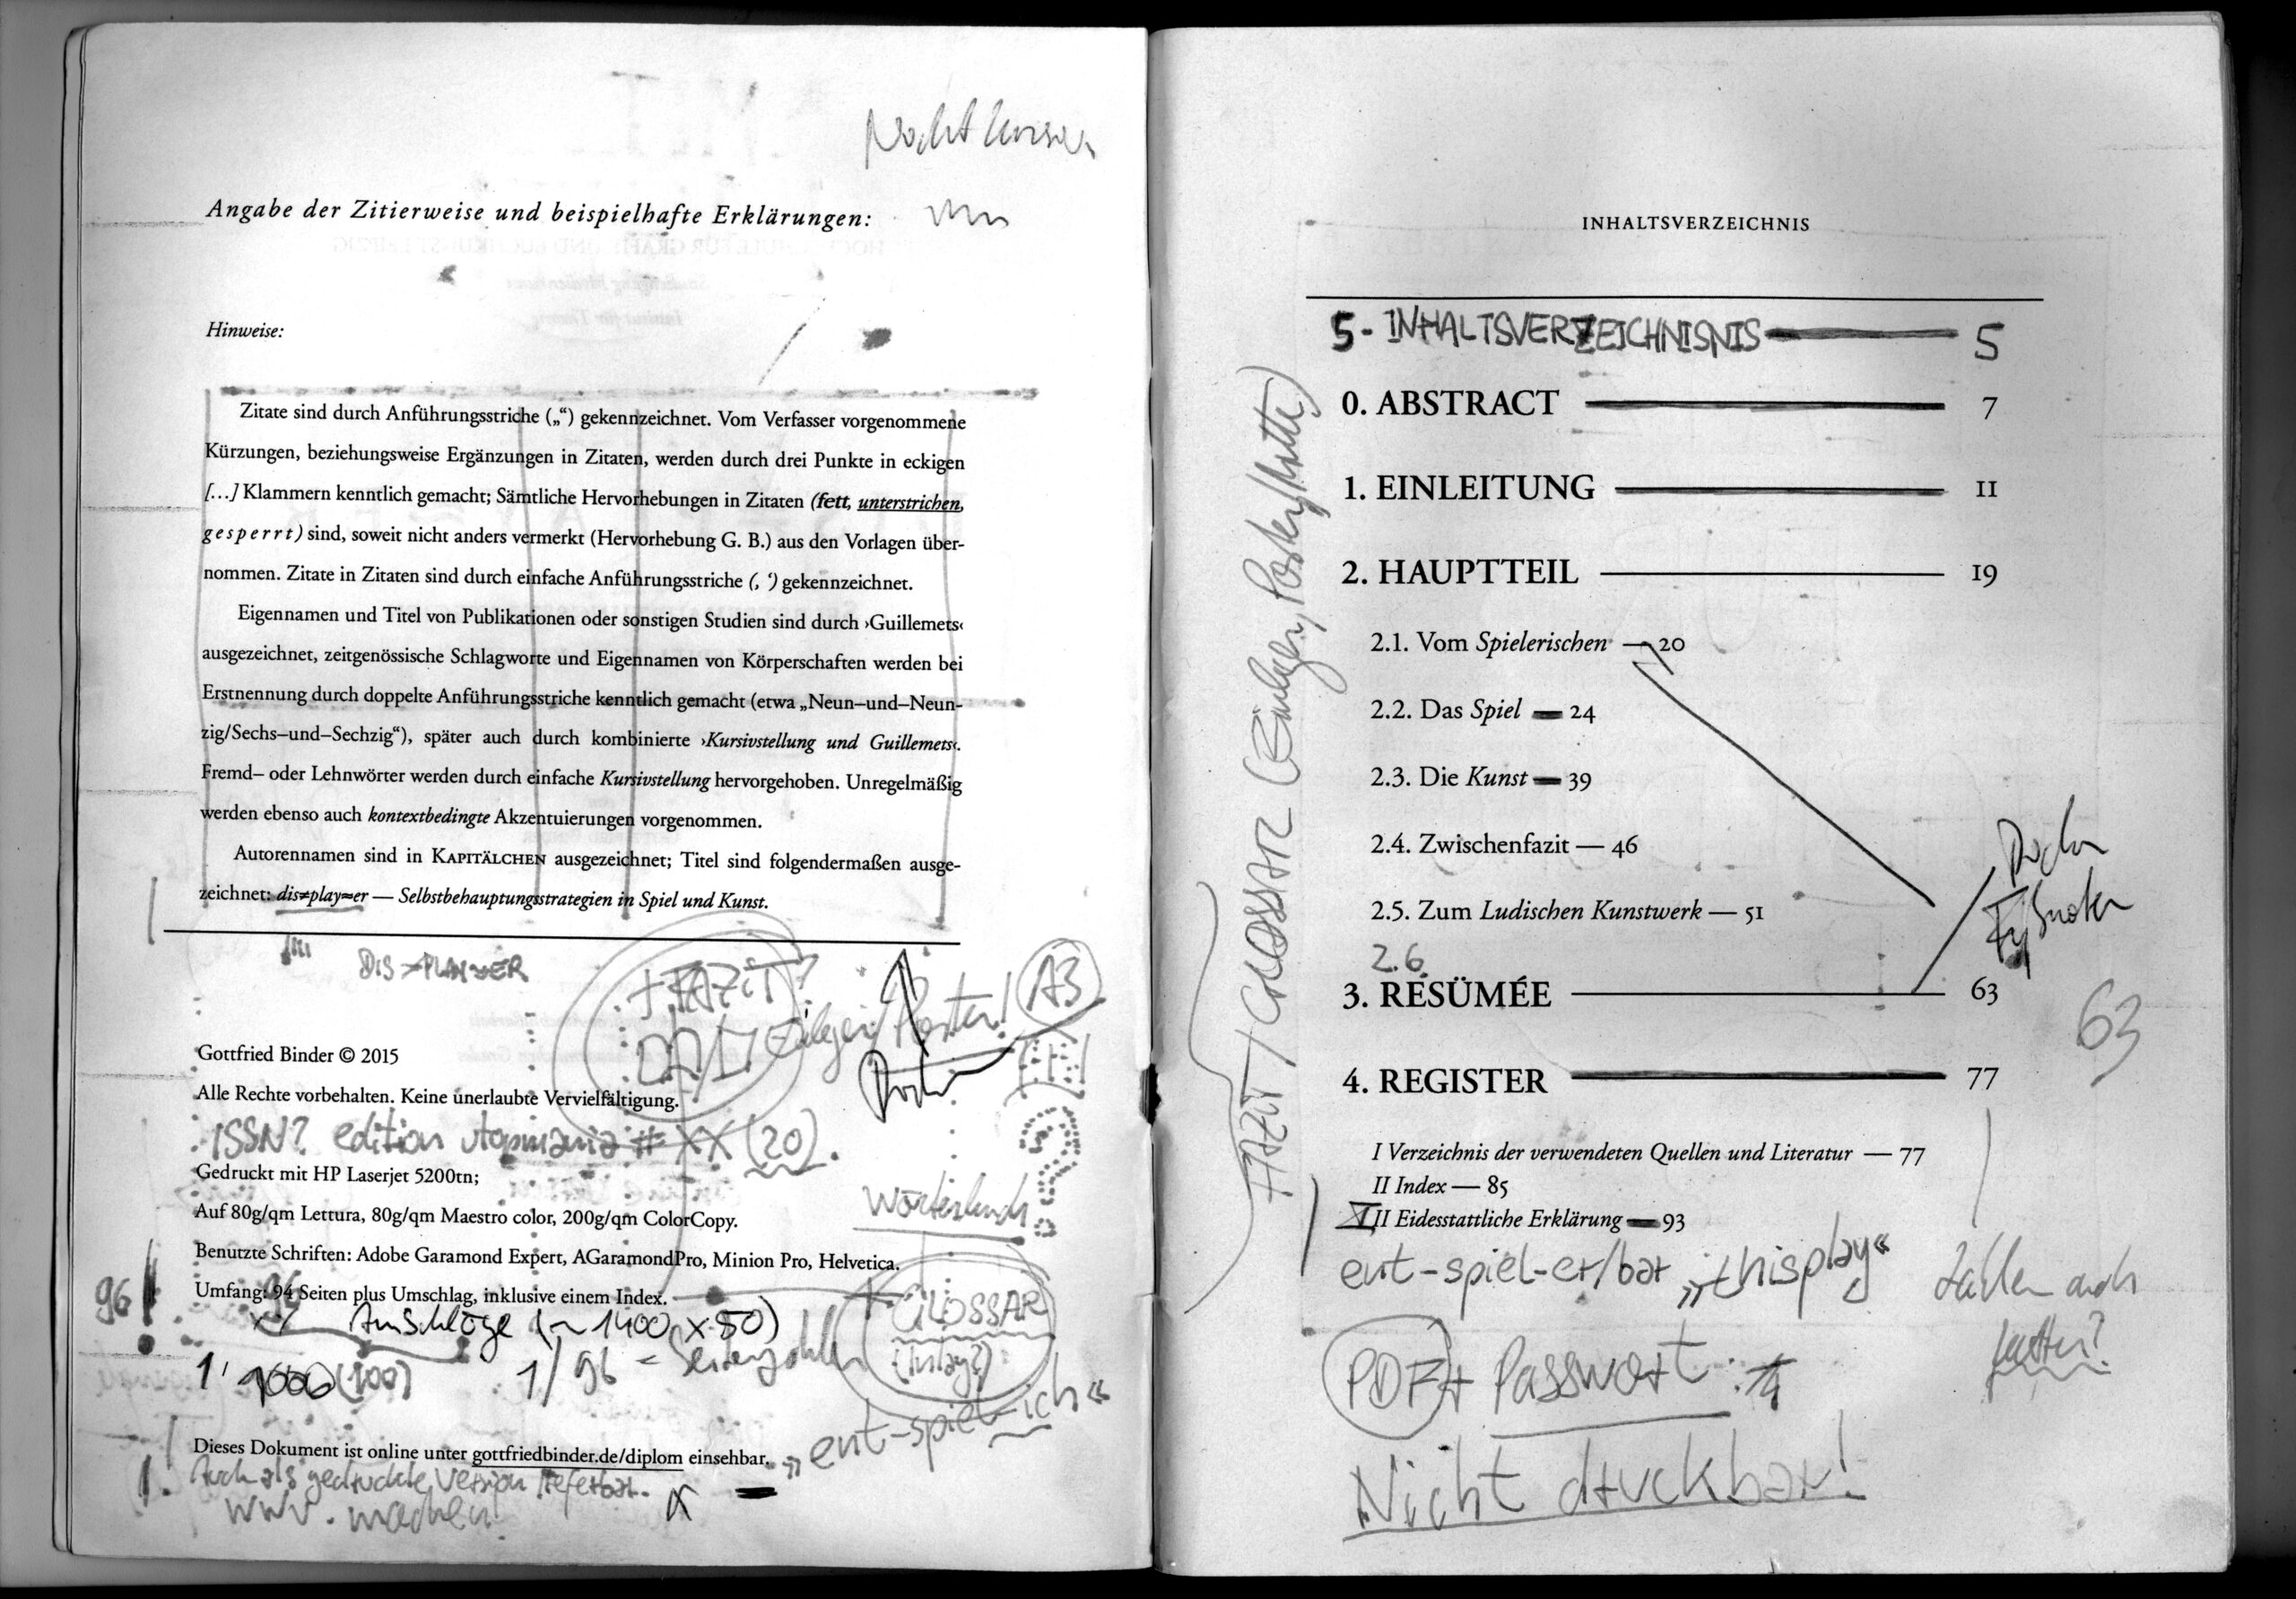 Angabe der Zitierweise und beispielhafte Erklärungen:
Hinweise:
Zitate sind durch Anführungsstriche („“) gekennzeichnet. Vom Verfasser vorgenommene
Kürzungen, beziehungsweise Ergänzungen in Zitaten, werden durch drei Punkte in eckigen
[…] Klammern kenntlich gemacht; Sämtliche Hervorhebungen in Zitaten (fett, unterstrichen,
gesperrt) sind, soweit nicht anders vermerkt (Hervorhebung G. B.) aus den Vorlagen über-
nommen. Zitate in Zitaten sind durch einfache Anführungsstriche (‚ ‘) gekennzeichnet.
Eigennamen und Titel von Publikationen oder sonstigen Studien sind durch ›Guillemets‹
ausgezeichnet, zeitgenössische Schlagworte und Eigennamen von Körperschaften werden bei
Erstnennung durch doppelte Anführungsstriche kenntlich gemacht (etwa „Neun–und–Neun-
zig/Sechs–und–Sechzig“), später auch durch kombinierte ›Kursivstellung und Guillemets‹.
Fremd– oder Lehnwörter werden durch einfache Kursivstellung hervorgehoben. Unregelmäßig
werden ebenso auch kontextbedingte Akzentuierungen vorgenommen.
Autorennamen sind in KAPITÄLCHEN ausgezeichnet; Titel sind folgendermaßen ausge-
zeichnet: dis≠play≈er — Selbstbehauptungsstrategien in Spiel und Kunst.
DIS≠PLAY≈ER
+FAZIT?
Einleger/Poster! A3
Gottfried Binder © 2015
Alle Rechte vorbehalten. Keine unerlaubte Vervielfältigung.
ISSN? edition utopmania # XX (20).
Gedruckt mit HP Laserjet 5200tn;
Wörterbuch
Auf 80g/qm Lettura, 80g/qm Maestro color, 200g/qm ColorCopy.
Benutzte Schriften: Adobe Garamond Expert, AGaramondPro, Minion Pro, Helvetica.
96
Umfang: 94 Seiten plus Umschlag, inklusive einem Index.
96
GLOSSAR
(Inlay?)
Anschläge (~1400 x 80)
(100)
1/96 = Seitenzahlen
„ent-spiel-ich“
Dieses Dokument ist online unter gottfriedbinder.de/diplom einsehbar.
Auch als gedruckte Version lieferbar.
www. machen
INHALTSVERZEICHNIS
5- INHALTSVERZEICHNISNIS 5
0. ABSTRACT 7
1. EINLEITUNG 11
2. HAUPTTEIL 19
2.1. Vom Spielerischen — 20
2.2. Das Spiel — 24
2.3. Die Kunst — 39
2.4. Zwischenfazit — 46
2.5. Zum Ludischen Kunstwerk — 51
2.6
3. RESÜMÉE 63
63
4. REGISTER 77
I Verzeichnis der verwendeten Quellen und Literatur — 77
II Index — 85
III Eidesstattliche Erklärung — 93
FAZIT / GLOSSAR
Fußnoten
ent-spiel-er/bar „thisplay“
PDF + Passwort
Nicht druckbar!